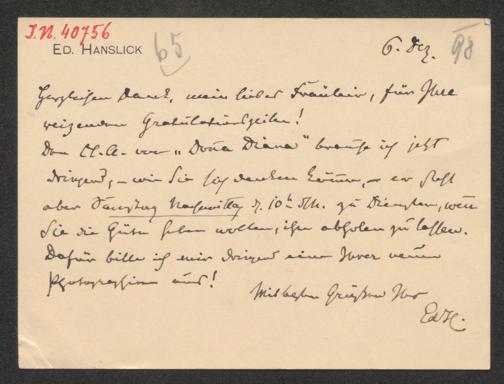 I.N. 40756
ED. HANSLICK
65
6. Dez.
98
Herzlichen Dank, mein liebes Fräulein, für Ihre
reizenden Gratulationszeilen!
Den Cl. A. von "Dona Diana" brauche ich jetzt
dringend, – wie Sie sich denken können, – er steht
aber Samstag Nachmittag d. 10t zu Diensten, wenn
Sie die Güte haben wollen, ihn abholen zu lassen.
Dafür bitte ich mir dringend eine Ihrer neuen
Photographien aus!
Mit besten Grüßen Ihr
EdH.